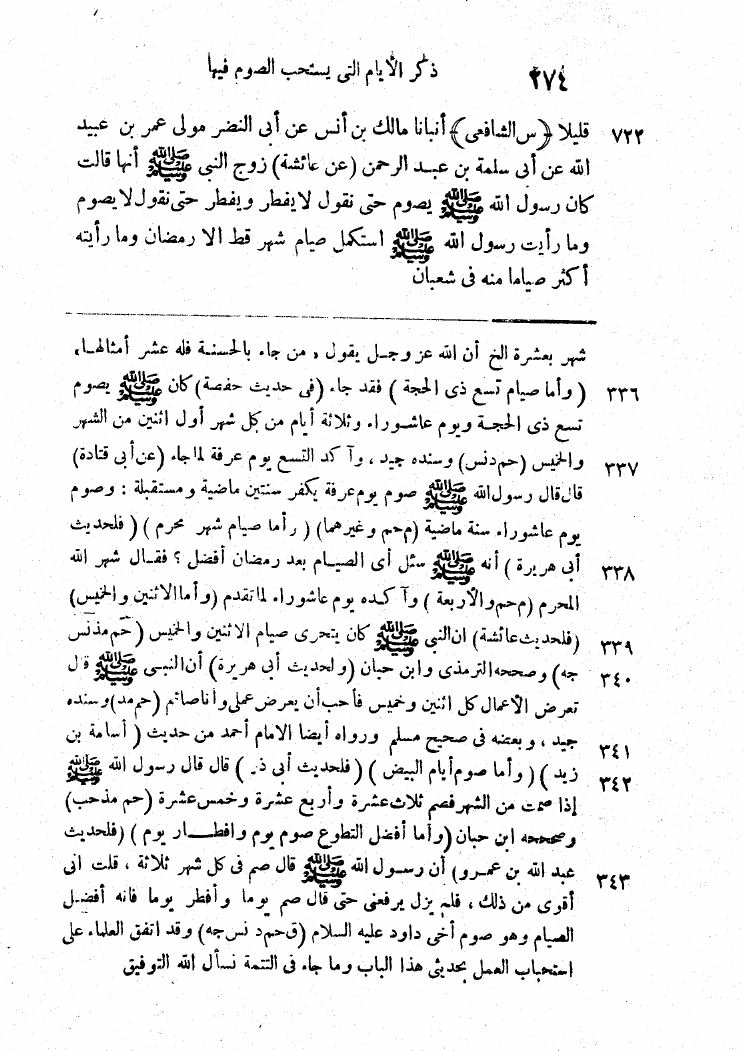 ٢٧٤ ذكر الأيام التى يستحب الصوم فيها
٧٢٢ قليلا ﴿س الشافعى﴾ أنبانا مالك بن أنس عن أبى النضر مولى عمر بن عبيد
الله عن أبى سلمة بن عبد الرحمن (عن عائشة) زوج النبى ﷺ أنها قالت
كان رسول الله ﷺ يصوم حتى نقول لا يفطر ويفطر حتى نقول لا يصوم
وما رأيت رسول الله ﷺ استكمل صيام شهر قط الا رمضان وما رأيته
أكثر صياما منه فى شعبان
شهر بعشرة الخ أن الله عز وجل يقول ، من جاء بالحسنة فله عشر أمثالها،
٣٣٦ (وأما صيام تسع ذى الحجة) فقد جاء (فى حديث حفصة) كان ﷺ يصوم
تسع ذى الحجة ويوم عاشوراء وثلاثة أيام من كل شهر أول اثنين من الشهر
٣٣٧ والخميس (حم د نس) وسنده جيد ، وآكد التسع يوم عرفة لما جاء (عن أبى قتادة)
قال قال رسول الله ﷺ صوم يوم عرفة يكفر سنتين ماضية ومستقبلة : وصوم
يوم عاشوراء سنة ماضية (م حم وغيرهما) (وأما صيام شهر محرم) (فلحديث
٣٣٨ أبى هريرة) أنه ﷺ سئل أى الصيام بعد رمضان أفضل ؟ فقال شهر الله
المحرم (م حم والأربعة) وآكده يوم عاشوراء لما تقدم (وأما الاثنين والخميس)
٣٣٩ (فلحديث عائشة) ان النبى ﷺ كان يتحرى صيام الاثنين والخميس (حم مذ نس
٣٤٠ جه) وصححه الترمذى وابن حبان (ولحديث أبى هريرة) أن النبى ﷺ قال
تعرض الأعمال كل اثنين وخميس فأحب أن يعرض عملى وأنا صائم (حم مد) وسنده
٣٤١ جيد ، وبعضه فى صحيح مسلم ورواه أيضا الامام أحمد من حديث (أسامة بن
٣٤٢ زيد) (وأما صوم أيام البيض) (فلحديث أبى ذر) قال قال رسول الله ﷺ
إذا صمت من الشهر فصم ثلاث عشرة وأربع عشرة وخمس عشرة (حم مذ حب)
وصححه ابن حبان (وأما أفضل التطوع صوم يوم وافطار يوم) (فلحديث
٣٤٣ عبد الله بن عمرو) أن رسول الله ﷺ قال صم فى كل شهر ثلاثة ، قلت انى
أقوى من ذلك ، فلم يزل يرفعنى حتى قال صم يوما وأفطر يوما فانه أفضل
الصيام وهو صوم أخى داود عليه السلام (ق حم د نس جه) وقد اتفق العلماء على
استحباب العمل بحديثى هذا الباب وما جاء فى التتمة نسأل الله التوفيق